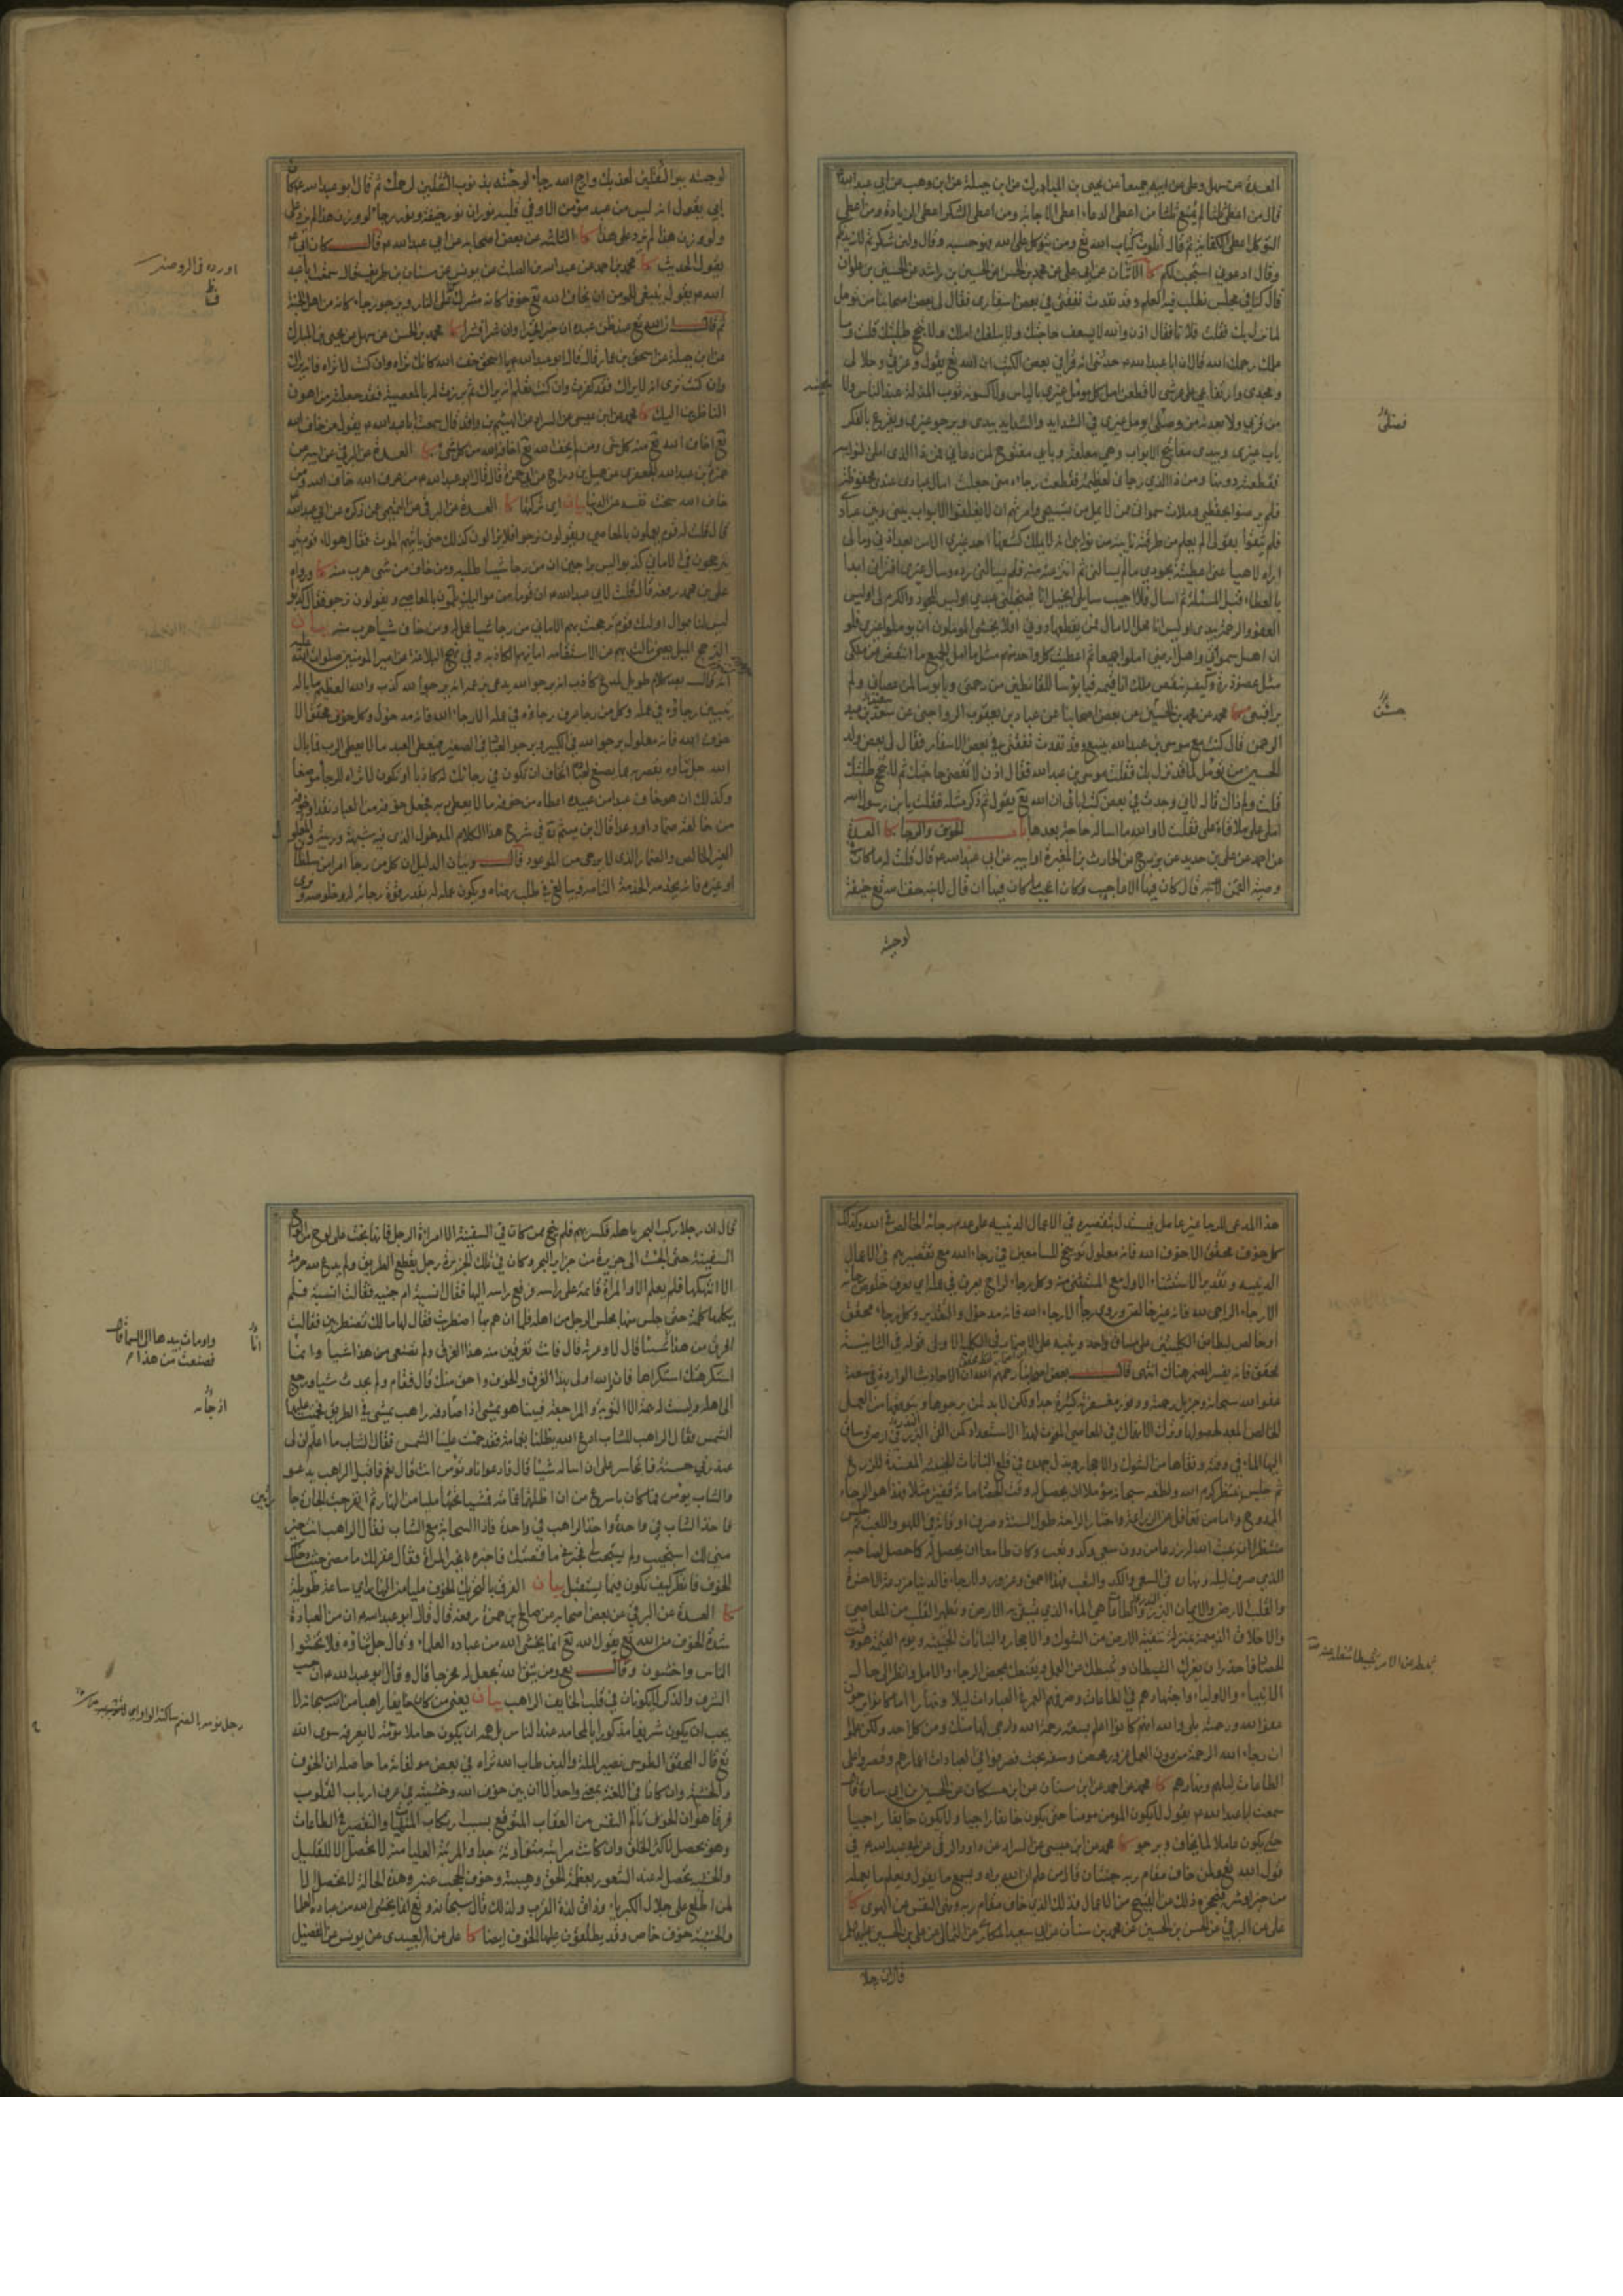 العدة عن سهل وعلي عن ابيه جميعا عن يحيى بن المبارك عن ابن جبلة عن ابن وهب عن ابي عبدالله
قال من اعطي ثلثا لم يمنع ثلثا من اعطي الدعاء اعطي الاجابة ومن اعطي الشكر اعطي الزيادة ومن اعطي
التوكل اعطي الكفاية ثم قال اتلوت كتاب الله تع ومن يتوكل على الله فهو حسبه وقال ولئن شكرتم لازيدنكم
وقال ادعوني استجب لكم كا الاثنان عن ابي علي عن محمد بن الحسن عن الحسين بن راشد عن الحسين بن علوان
قال كنا في مجلس نطلب فيه العلم وقد نفدت نفقتي في بعض اسفاري فقال لي بعض اصحابنا من تؤمل
لما نزل بك فقلت فلانا فقال اذن والله لا يسعف حاجتك ولا يبلغك املك ولا ينجح طلبتك قلت وما
علمك رحمك الله قال ان ابا عبدالله حدثني انه قرا في بعض الكتب ان الله تع يقول وعزتي وجلالي
ومجدي وارتفاعي على عرشي لاقطعن امل كل مؤمل غيري بالياس ولاكسونه ثوب المذلة عند الناس ولا
من قربي ولابعدنه من وصلي ايؤمل غيري في الشدايد والشدايد بيدي ويرجو غيري ويقرع بالفكر
باب غيري وبيدي مفاتيح الابواب وهي مغلقة وبابي مفتوح لمن دعاني فمن ذا الذي املني لنوايبه
فقطعته دونها ومن ذا الذي رجاني لعظيمة فقطعت رجاءه مني جعلت امال عبادي عندي محفوظة
فلم يرضوا بحفظي وملات سمواتي ممن لا يمل من تسبيحي وامرتهم ان لا يغلقوا الابواب بيني وبين عبادي
فلم يثقوا بقولي الم يعلم من طرقته نايبة من نوايبي انه لا يملك كشفها احد غيري الا من بعد اذني فمالي
اراه لاهيا عني اعطيته بجودي ما لم يسالني ثم انتزعته عنه فلم يسالني رده وسال غيري افتراني ابدا
بالعطاء قبل المسئلة ثم اسال فلا اجيب سايلي ابخيل انا فيبخلني عبدي اوليس الجود والكرم لي اوليس
العفو والرحمة بيدي اوليس انا محل الامال فمن يقطعها دوني افلا يخشى المؤملون ان يؤملوا غيري فلو
ان اهل سمواتي واهل ارضي املوا جميعا ثم اعطيت كل واحد منهم مثل ما امل الجميع ما انتقص من ملكي
مثل عضو ذرة وكيف ينقص ملك انا قيمه فيا بؤسا للقانطين من رحمتي ويا بؤسا لمن عصاني ولم
يراقبني كا محمد عن محمد بن الحسين عن بعض اصحابنا عن عباد بن يعقوب الرواجني عن سعيد بن عبد
الرحمن قال كنت مع موسى بن عبدالله بينبع وقد نفدت نفقتي في بعض الاسفار فقال لي بعض ولد
الحسين من تؤمل لما قد نزل بك فقلت موسى بن عبدالله فقال اذن لا تقضى حاجتك ثم لا تنجح طلبتك
قلت ولم ذاك قال لاني وجدت في بعض كتب ابائي ان الله تع يقول ثم ذكر مثله فقلت يابن رسول الله
امل علي فاملاه علي فقلت لا والله ما اساله حاجة بعدها باب الخوف والرجا كا العدة
عن احمد عن علي بن حديد عن بزرج عن الحارث بن المغيرة او ابيه عن ابي عبدالله قال قلت له ما كان في
وصية لقمن لابنه قال كان فيها الاعاجيب وكان اعجب ما كان فيها ان قال لابنه خف الله تع خيفة
لوجئته
فضلي
حسين
لوجئته ببر الثقلين لعذبك وارج الله رجاء لوجئته بذنوب الثقلين لرحمك ثم قال ابو عبدالله كان
ابي يقول انه ليس من عبد مؤمن الا وفي قلبه نوران نور خيفة ونور رجاء لو وزن هذا لم يزد على
ولو وزن هذا لم يزد على هذا كا الثلثة عن بعض اصحابه عن ابي عبدالله قال كان ابي
يقول الحديث كا محمد بن احمد عن عبدالله بن الصلت عن يونس عن سنان بن طريف قال سمعت ابا عبد
الله يقول ينبغي للمؤمن ان يخاف الله تع خوفا كانه مشرف على النار ويرجوه رجاء كانه من اهل الجنة
ثم قال ان الله تع عند ظن عبده ان خيرا فخيرا وان شرا فشرا كا محمد بن الحسن عن سهل عن يحيى بن المبارك
عن ابن جبلة عن اسحق بن عمار قال قال ابو عبدالله يا اسحق خف الله كانك تراه وان كنت لا تراه فانه يراك
وان كنت ترى انه لا يراك فقد كفرت وان كنت تعلم انه يراك ثم برزت له بالمعصية فقد جعلته من اهون
الناظرين اليك كا محمد عن ابن عيسى عن السراد عن الهيثم بن واقد قال سمعت ابا عبدالله يقول من خاف الله
تع اخاف الله تع منه كل شي ومن لم يخف الله تع اخافه الله من كل شي كا العدة عن البرقي عن ابيه عن
حمزة بن عبدالله الجعفري عن جميل بن دراج عن ابي حمزة قال قال ابو عبدالله من عرف الله خاف الله ومن
خاف الله سخت نفسه عن الدنيا بيان اي تركتها كا العدة عن البرقي عن التميمي عمن ذكره عن ابي عبدالله
قال قلت له قوم يعملون بالمعاصي ويقولون نرجو فلا يزالون كذلك حتى ياتيهم الموت فقال هولاء قوم
يترجحون في الاماني كذبوا ليس براجين ان من رجا شيئا طلبه ومن خاف من شي هرب منه كا ورواه
علي بن محمد رفعه قال قلت لابي عبدالله ان قوما من مواليك يلمون بالمعاصي ويقولون نرجو فقال كذبوا
ليس لنا بموال اولئك قوم ترجحت بهم الاماني من رجا شيئا عمل له ومن خاف شيئا هرب منه بيان
الترجح الميل يعني مالت بهم عن الاستقامة امانيهم الكاذبة وفي نهج البلاغة عن امير المؤمنين صلوات الله عليه
انه قال بعد كلام طويل لمدع كاذب انه يرجو الله يدعي بزعمه انه يرجو الله كذب والله العظيم ما باله لا
يتبين رجاؤه في عمله وكل من رجا عرف رجاؤه في عمله الا رجاء الله فانه مدخول وكل خوف محقق الا
خوف الله فانه معلول يرجو الله في الكبير ويرجو العباد في الصغير فيعطي العبد ما لا يعطي الرب فما بال
الله جل ثناؤه يقصر به عما يصنع لعباده اتخاف ان تكون في رجائك له كاذبا او تكون لا تراه للرجا موضعا
وكذلك ان هو خاف عبدا من عبيده اعطاه من خوفه ما لا يعطي ربه فجعل خوفه من العباد نقدا وخوفه
من خالقه ضمارا ووعدا قال ابن ميثم في شرح هذا الكلام المدخول الذي فيه شبهة وريبة والمعلول
الغير الخالص والضمار الذي لا يرجى من الموعود قال وبيان الدليل ان كل من رجا امرا من سلطان
او غيره فانه يخدمه الخدمة التامة ويبالغ في طلب رضاه ويكون عمله له بقدر قوة رجائه له وخلوصه ونرى
اورده في الروضة
هذا المدعي للرجا غير عامل فيستدل بتقصيره في الاعمال الدينية على عدم رجائه الخالص في الله وكذلك
كل خوف محقق الا خوف الله فانه معلول توبيخ للسامعين في رجاء الله مع تقصيرهم في الاعمال
الدينية وتقدير الاستثناء الاول مع المستثنى منه وكل رجاء لراج يعرف في عمله اي يعرف خلوص رجائه
الا رجاء الراجي لله فانه غير خالص وروي وكل رجا الا رجاء الله فانه مدخول والتقدير وكل رجاء محقق
او خالص ليطابق الكليتين على مساق واحد وينبه على الاضمار في الكلية الاولى قوله في الثانية
محقق فانه يفسر المضمر هناك انتهى قال بعض اصحابنا رحمهم الله ان الاحاديث الواردة في سعة
عفو الله سبحانه وجزيل رحمته ووفور مغفرته كثيرة جدا ولكن لا بد لمن يرجوها ويتوقعها من العمل
الخالص المعد لحصولها وترك الانهماك في المعاصي المفوت لهذا الاستعداد كمن القى البذر في ارض وساق
اليها الماء في وقته ونقاها من الشوك والاحجار وبذل جهده في قلع النباتات الخبيثة المفسدة للزرع
ثم جلس ينتظر كرم الله ولطفه سبحانه مؤملا ان يحصل له وقت الحصاد مائة قفيز مثلا فهذا هو الرجاء
الممدوح واما من تغافل عن الزراعة واختار الراحة طول السنة وصرف اوقاته في اللهو واللعب ثم جلس
منتظرا ان ينبت الله له زرعا من دون سعي وكد وتعب وكان طامعا ان يحصل له كما حصل لصاحبه
الذي صرف ليله ونهاره في السعي والكد والتعب فهذا حمق وغرور لا رجاء فالدنيا مزرعة الاخرة
والقلب الارض والايمان البذر والطاعات هي الماء الذي تسقى به الارض وتطهير القلب من المعاصي
والاخلاق الذميمة بمنزلة تنقية الارض من الشوك والاحجار والنباتات الخبيثة ويوم القيمة هو وقت
الحصاد فاحذر ان يغرك الشيطان ويثبطك عن العمل ويقنعك بمحض الرجاء والامل وانظر الى حال
الانبياء والاولياء واجتهادهم في الطاعات وصرفهم العمر في العبادات ليلا ونهارا اما كانوا يرجون
عفو الله ورحمته بلى والله انهم كانوا اعلم بسعة رحمة الله وارجى لها منك ومن كل احد ولكن علموا
ان رجاء الله الرحمة من دون العمل غرور محض وسفه بحت فصرفوا في العبادات اعمارهم وقصروا على
الطاعات ليلهم ونهارهم كا محمد عن احمد عن ابن سنان عن ابن مسكان عن الحسين بن ابي سارة قال
سمعت ابا عبدالله يقول لا يكون المؤمن مؤمنا حتى يكون خائفا راجيا ولا يكون خائفا راجيا
حتى يكون عاملا لما يخاف ويرجو كا محمد عن ابن عيسى عن السراد عن داود الرقي عن ابي عبدالله في
قول الله تع ولمن خاف مقام ربه جنتان قال من علم ان الله يراه ويسمع ما يقول ويعلم ما يعمله
من خير او شر فيحجزه ذلك عن القبيح من الاعمال فذلك الذي خاف مقام ربه ونهى النفس عن الهوى كا
علي عن البرقي عن الحسن بن الحسين عن محمد بن سنان عن ابي سعيد المكاري عن الثمالي عن علي بن الحسين
قال ان رجلا
قال ان رجلا ركب البحر باهله فكسر بهم فلم ينج ممن كان في السفينة الا امراة الرجل فانها نجت على لوح من الواح
السفينة حتى الجئت الى جزيرة من جزاير البحر وكان في تلك الجزيرة رجل يقطع الطريق ولم يدع لله حرمة
الا انتهكها فلم يعلم الا والمراة قائمة على راسه فرفع راسه اليها فقال انسية ام جنية فقالت انسية فلم
يكلمها كلمة حتى جلس منها مجلس الرجل من اهله فلما ان هم بها اضطربت فقال لها ما لك تضطربين فقالت
افرق من هذا فصنعت شيئا قال لا وعزته قال فانت تفرقين منه هذا الفرق ولم تصنعي من هذا شيئا وانما
استكرهتك استكراها فانا والله اولى بهذا الفرق والخوف واحق منك قال فقام ولم يحدث شيئا ورجع
الى اهله وليست له همة الا التوبة والمراجعة فبينا هو يمشي اذ صادفه راهب يمشي في الطريق فحميت عليهما
الشمس فقال الراهب للشاب ادع الله يظلنا بغمامة فقد حميت علينا الشمس فقال الشاب ما اعلم ان لي
عند ربي حسنة فاتجاسر على ان اساله شيئا قال فادعو انا وتؤمن انت قال نعم فاقبل الراهب يدعو
والشاب يؤمن فما كان باسرع من ان اظلتهما غمامة فمشيا تحتها مليا من النهار ثم انفرجت الجادة جا
فاخذ الشاب في واحدة واخذ الراهب في واحدة فاذا السحابة مع الشاب فقال الراهب انت خير
مني لك استجيب ولم يستجب لي فخبرني ما قصتك فاخبره بخبر المراة فقال غفر لك ما مضى حيث دخلك
الخوف فانظر كيف تكون فيما يستقبل بيان الفرق بالتحريك الخوف مليا من النهار اي ساعة طويلة
كا العدة عن البرقي عن بعض اصحابه عن صالح بن حمزة رفعه قال قال ابو عبدالله ان من العبادة
شدة الخوف من الله تع يقول الله تع انما يخشى الله من عباده العلماء وقال جل ثناؤه فلا تخشوا
الناس واخشون وقال تع ومن يتق الله يجعل له مخرجا قال وقال ابو عبدالله ان حب
الشرف والذكر لا يكونان في قلب الخايف الراهب بيان يعني من كان خايفا راهبا من الله سبحانه لا
يحب ان يكون شريفا مذكورا بالمحامد عند الناس بل همه ان يكون خاملا نومة لا يعرفه سوى الله
تع قال المحقق الطوسي نصير الملة والدين طاب الله ثراه في بعض مولفاته ما حاصله ان الخوف
والخشية وان كانا في اللغة بمعنى واحد الا ان بين خوف الله وخشيته في عرف ارباب القلوب
فرقا هو ان الخوف تالم النفس من العقاب المتوقع بسبب ارتكاب المنهيات والتقصير في الطاعات
وهو يحصل لاكثر الخلق وان كانت مراتبه متفاوتة جدا والمرتبة العليا منه لا تحصل الا للقليل
والخشية تحصل عند الشعور بعظمة الحق وهيبته وخوف الحجب عنه وهذه الحالة لا تحصل الا
لمن اطلع على جلال الكبرياء وذاق لذة القرب ولذلك قال سبحانه وتع انما يخشى الله من عباده العلماء
والخشية خوف خاص وقد يطلقون عليها الخوف ايضا كا علي عن العبيدي عن يونس عن الفضيل
واومات بيدها الى السماء قال
فصنعت من هذا